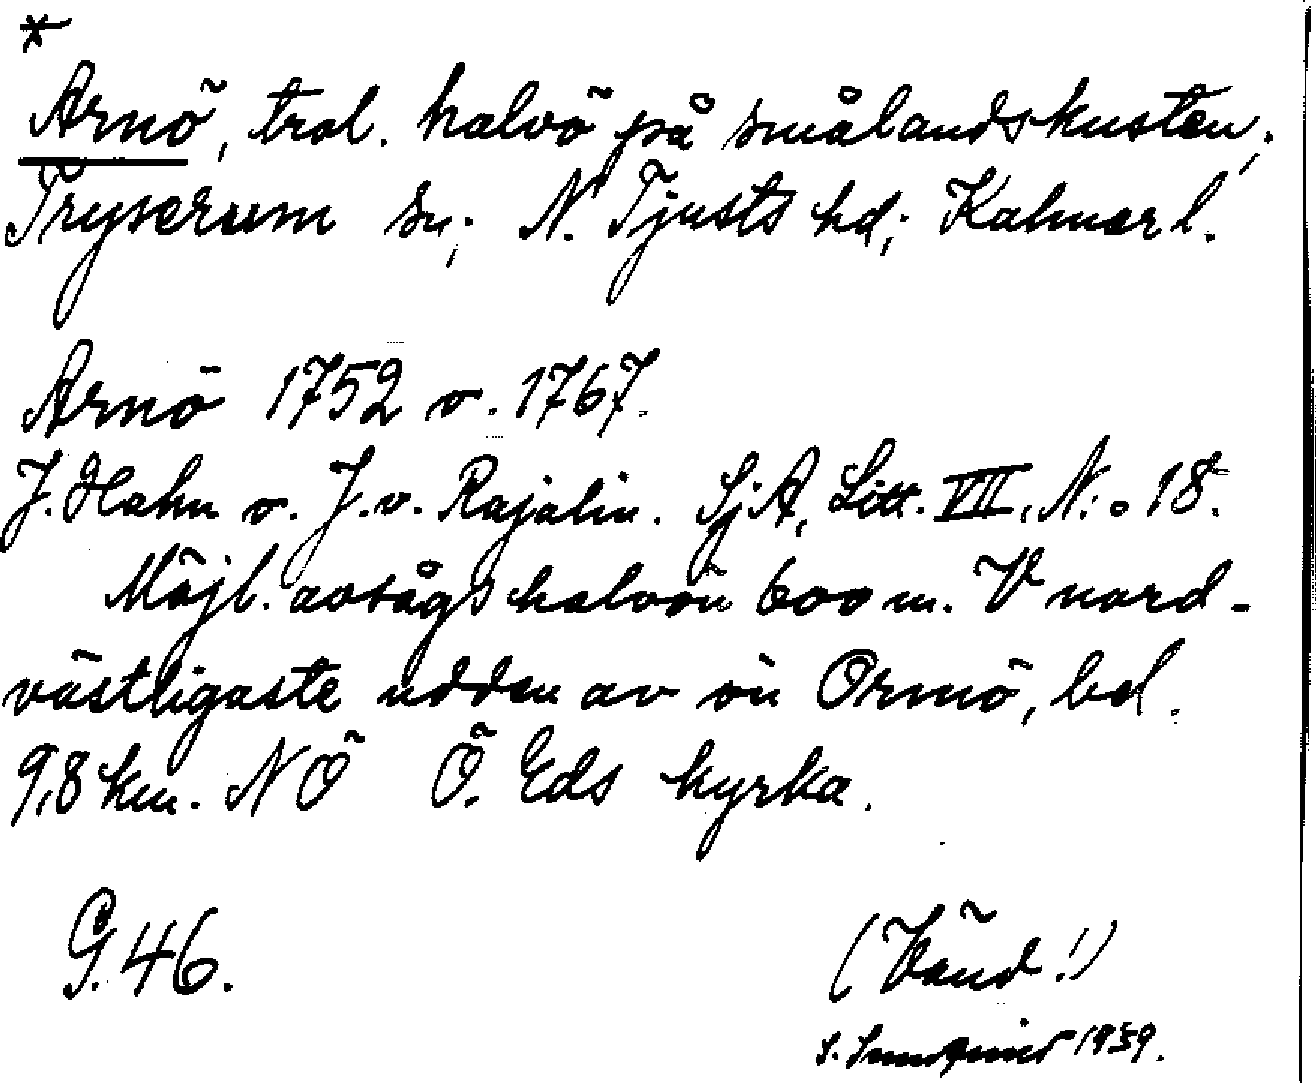 *
Arnö, trol. halvö på smålandskusten;
Tryserum sn; N. Tjusts hd; Kalmar l.
Arnö 1752 o. 1767.
J. Hahn o. J. v. Rajalin. SjA, Litt. VII, N:o 18.
Möjl. avsågs halvön 600 m. V nord-
västligaste udden av ön Ormö, bel.
9,8 km. NÖ Ö. Eds kyrka.
G. 46.
(Vänd!)
S. 1939.